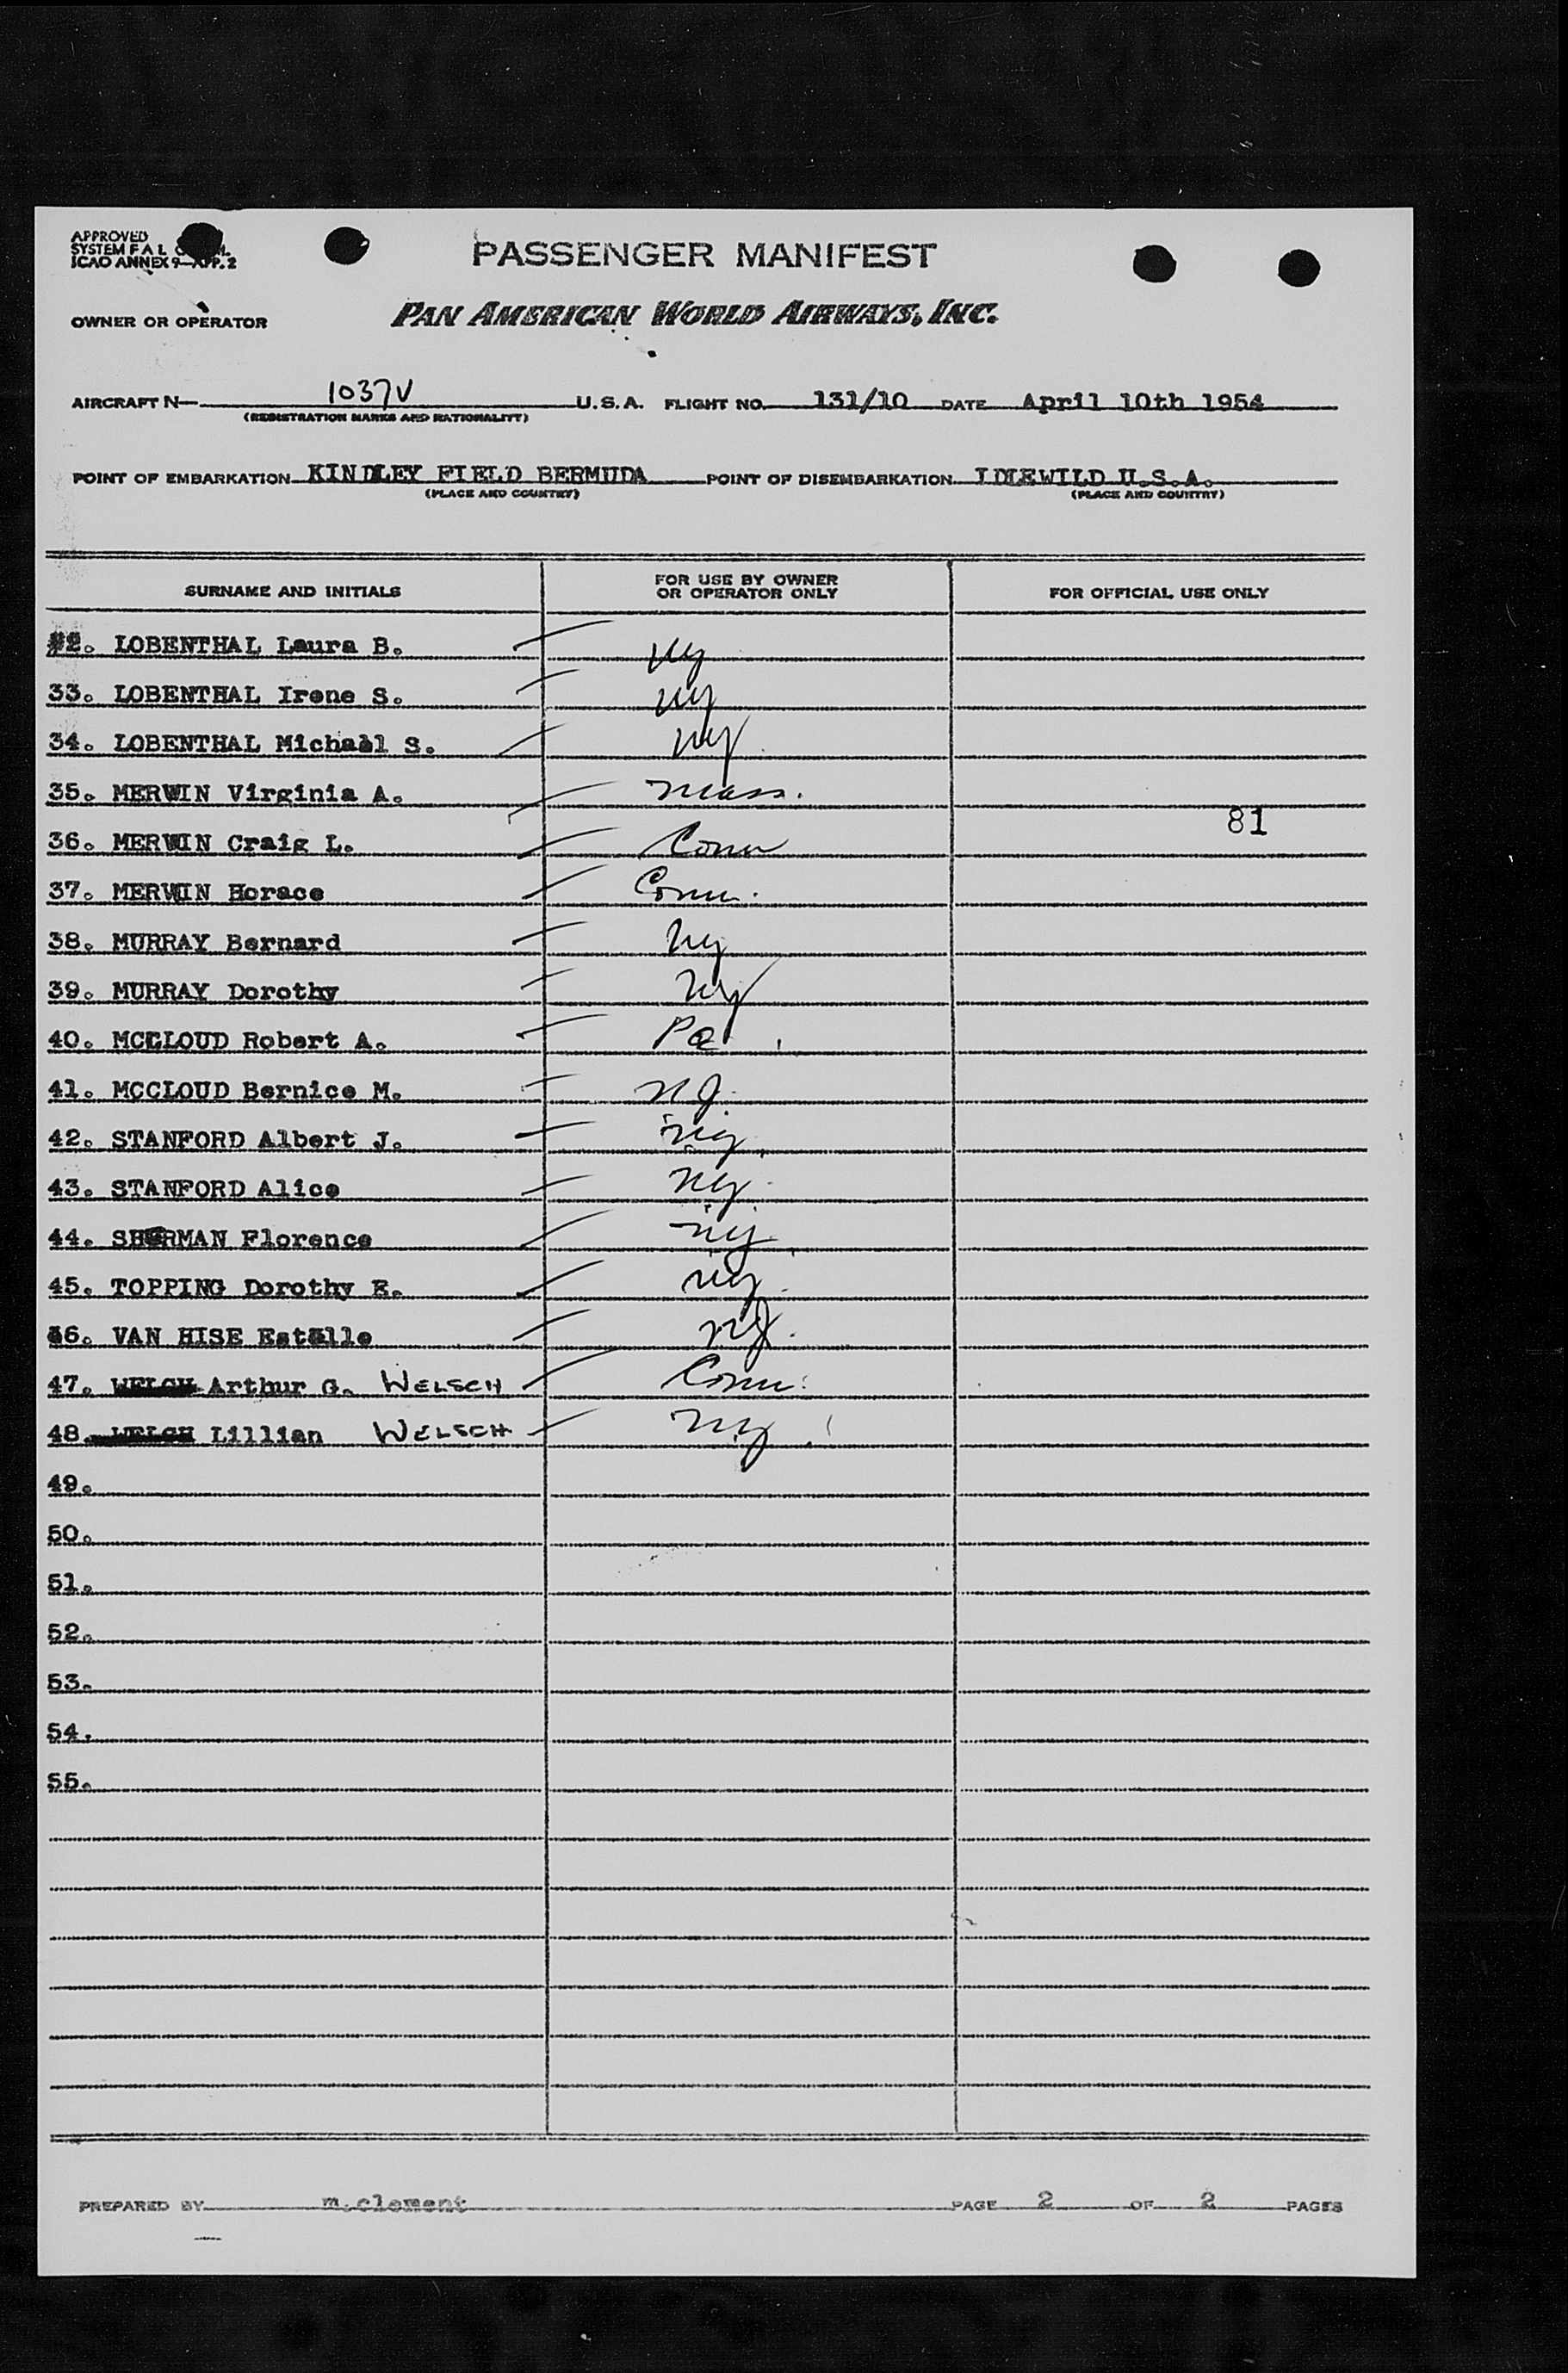 APPROVED
SYSTEM F A L
ICAO ANNEX 9—APP. 2
PASSENGER MANIFEST
OWNER OR OPERATOR PAN AMERICAN WORLD AIRWAYS, INC.
AIRCRAFT N— 1037V U.S.A. FLIGHT NO. 131/10 DATE April 10th 1954
(REGISTRATION MARKS AND NATIONALITY)
POINT OF EMBARKATION KINDLEY FIELD BERMUDA POINT OF DISEMBARKATION IDLEWILD U.S.A.
(PLACE AND COUNTRY) (PLACE AND COUNTRY)
SURNAME AND INITIALS FOR USE BY OWNER OR OPERATOR ONLY FOR OFFICIAL USE ONLY
LOBENTHAL Laura B. ny
33. LOBENTHAL Irene S. ny
34. LOBENTHAL Michael S. ny
35. MERWIN Virginia A. mass.
81
36. MERWIN Craig L. Conn
37. MERWIN Horace Conn.
38. MURRAY Bernard ny
39. MURRAY Dorothy ny
40. MCCLOUD Robert A. Pa
41. MCCLOUD Bernice M. NJ.
42. STANFORD Albert J. ny
43. STANFORD Alice ny
44. SHERMAN Florence ny
45. TOPPING Dorothy E. ny
46. VAN HISE Estelle NJ.
47. Arthur G. WELSCH Conn.
48. Lillian WELSCH ny
49.
50.
51.
52.
53.
54.
55.
PREPARED BY m.clement PAGE 2 OF 2 PAGES